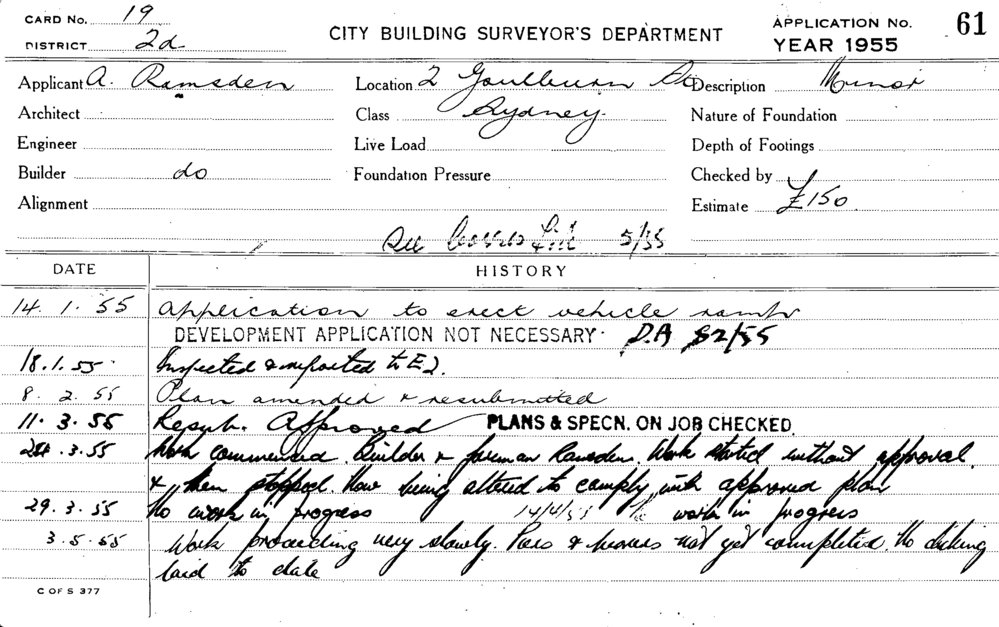 CARD No. 19
DISTRICT 2d
CITY BUILDING SURVEYOR'S DEPARTMENT
APPLICATION No. 61
YEAR 1955
Applicant A. Ramsden Location 2 Goulburn St Description Minor
Architect Class Sydney. Nature of Foundation
Engineer Live Load Depth of Footings
Builder do Foundation Pressure Checked by
Alignment Estimate £150.
See 5/55
DATE HISTORY
14. 1. 55 Application to erect vehicle ramp
DEVELOPMENT APPLICATION NOT NECESSARY. D.A 52/55
18.1.55 Inspected & reported to
8. 2. 55 Plan amended & resubmitted
11. 3. 55 Resub. Approved PLANS & SPECN. ON JOB CHECKED.
24.3.55 Work commenced. Builder & foreman Ramsden. Work started without approval
& then stopped. Now being altered to comply with approved plan
29. 3. 55 No work in progress 14/4/55 No work in progress
3. 5. 55 Work proceeding very slowly. Piers & not yet completed. No decking
laid to date
C OF S 377